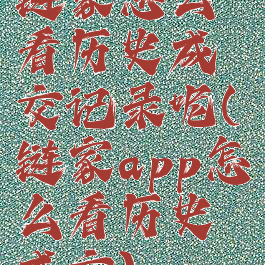 链家怎么
看历史成
交记录呢(
链家app怎
么看历史
成交)